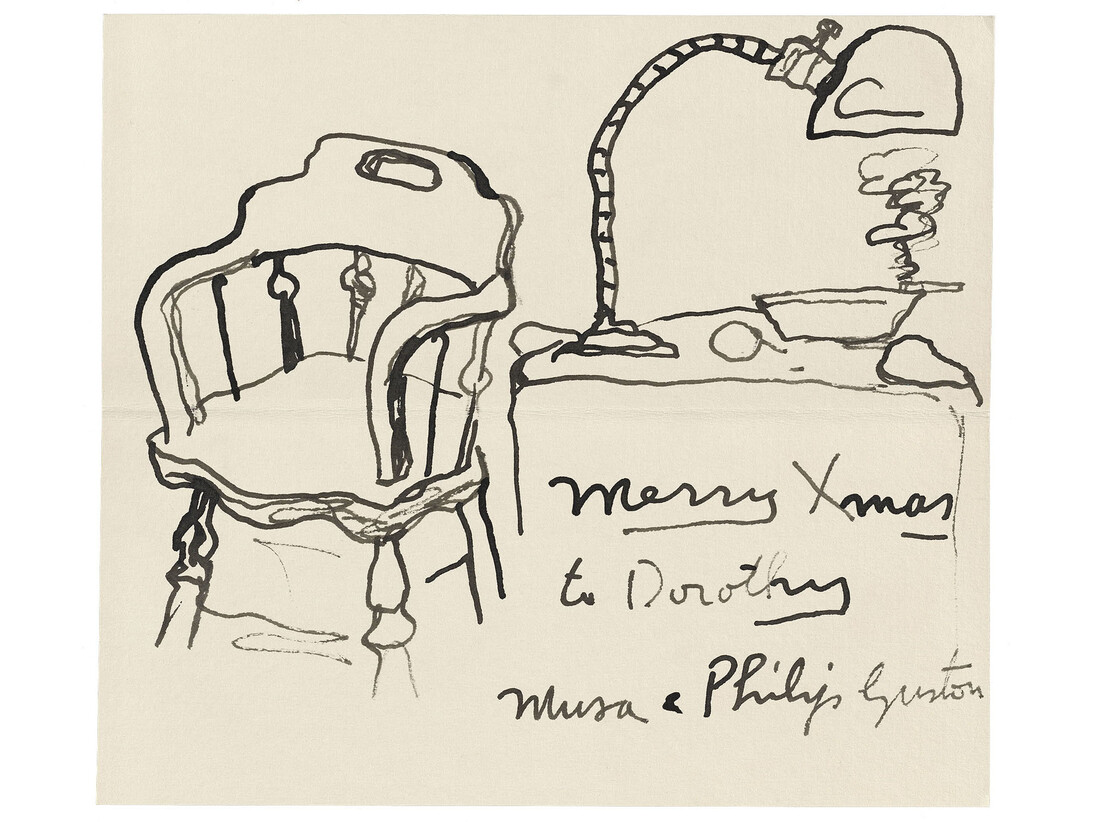 Merry Xmas
to Dorothy
Musa & Philip Guston